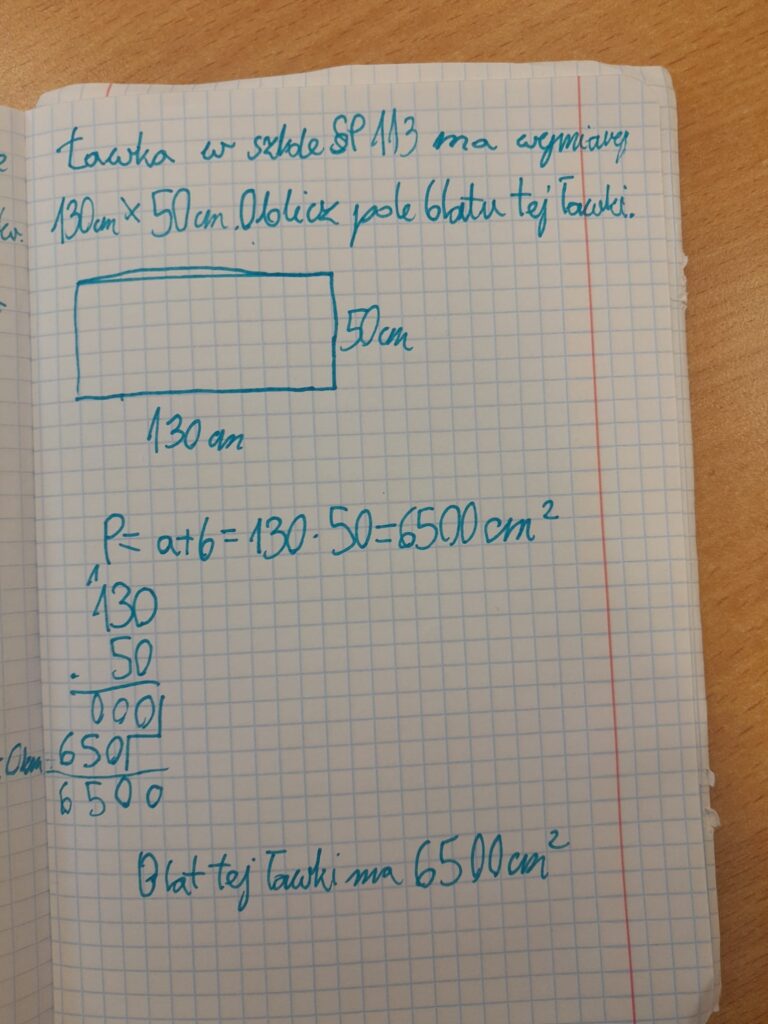 Ławka w szkole SP 113 ma wymiary
130cm × 50cm. Oblicz pole blatu tej ławki.
50cm
130 cm
P= a+b = 130 · 50 = 6500 cm²
1
130
. 50
000
650
6500
Blat tej ławki ma 6500cm²